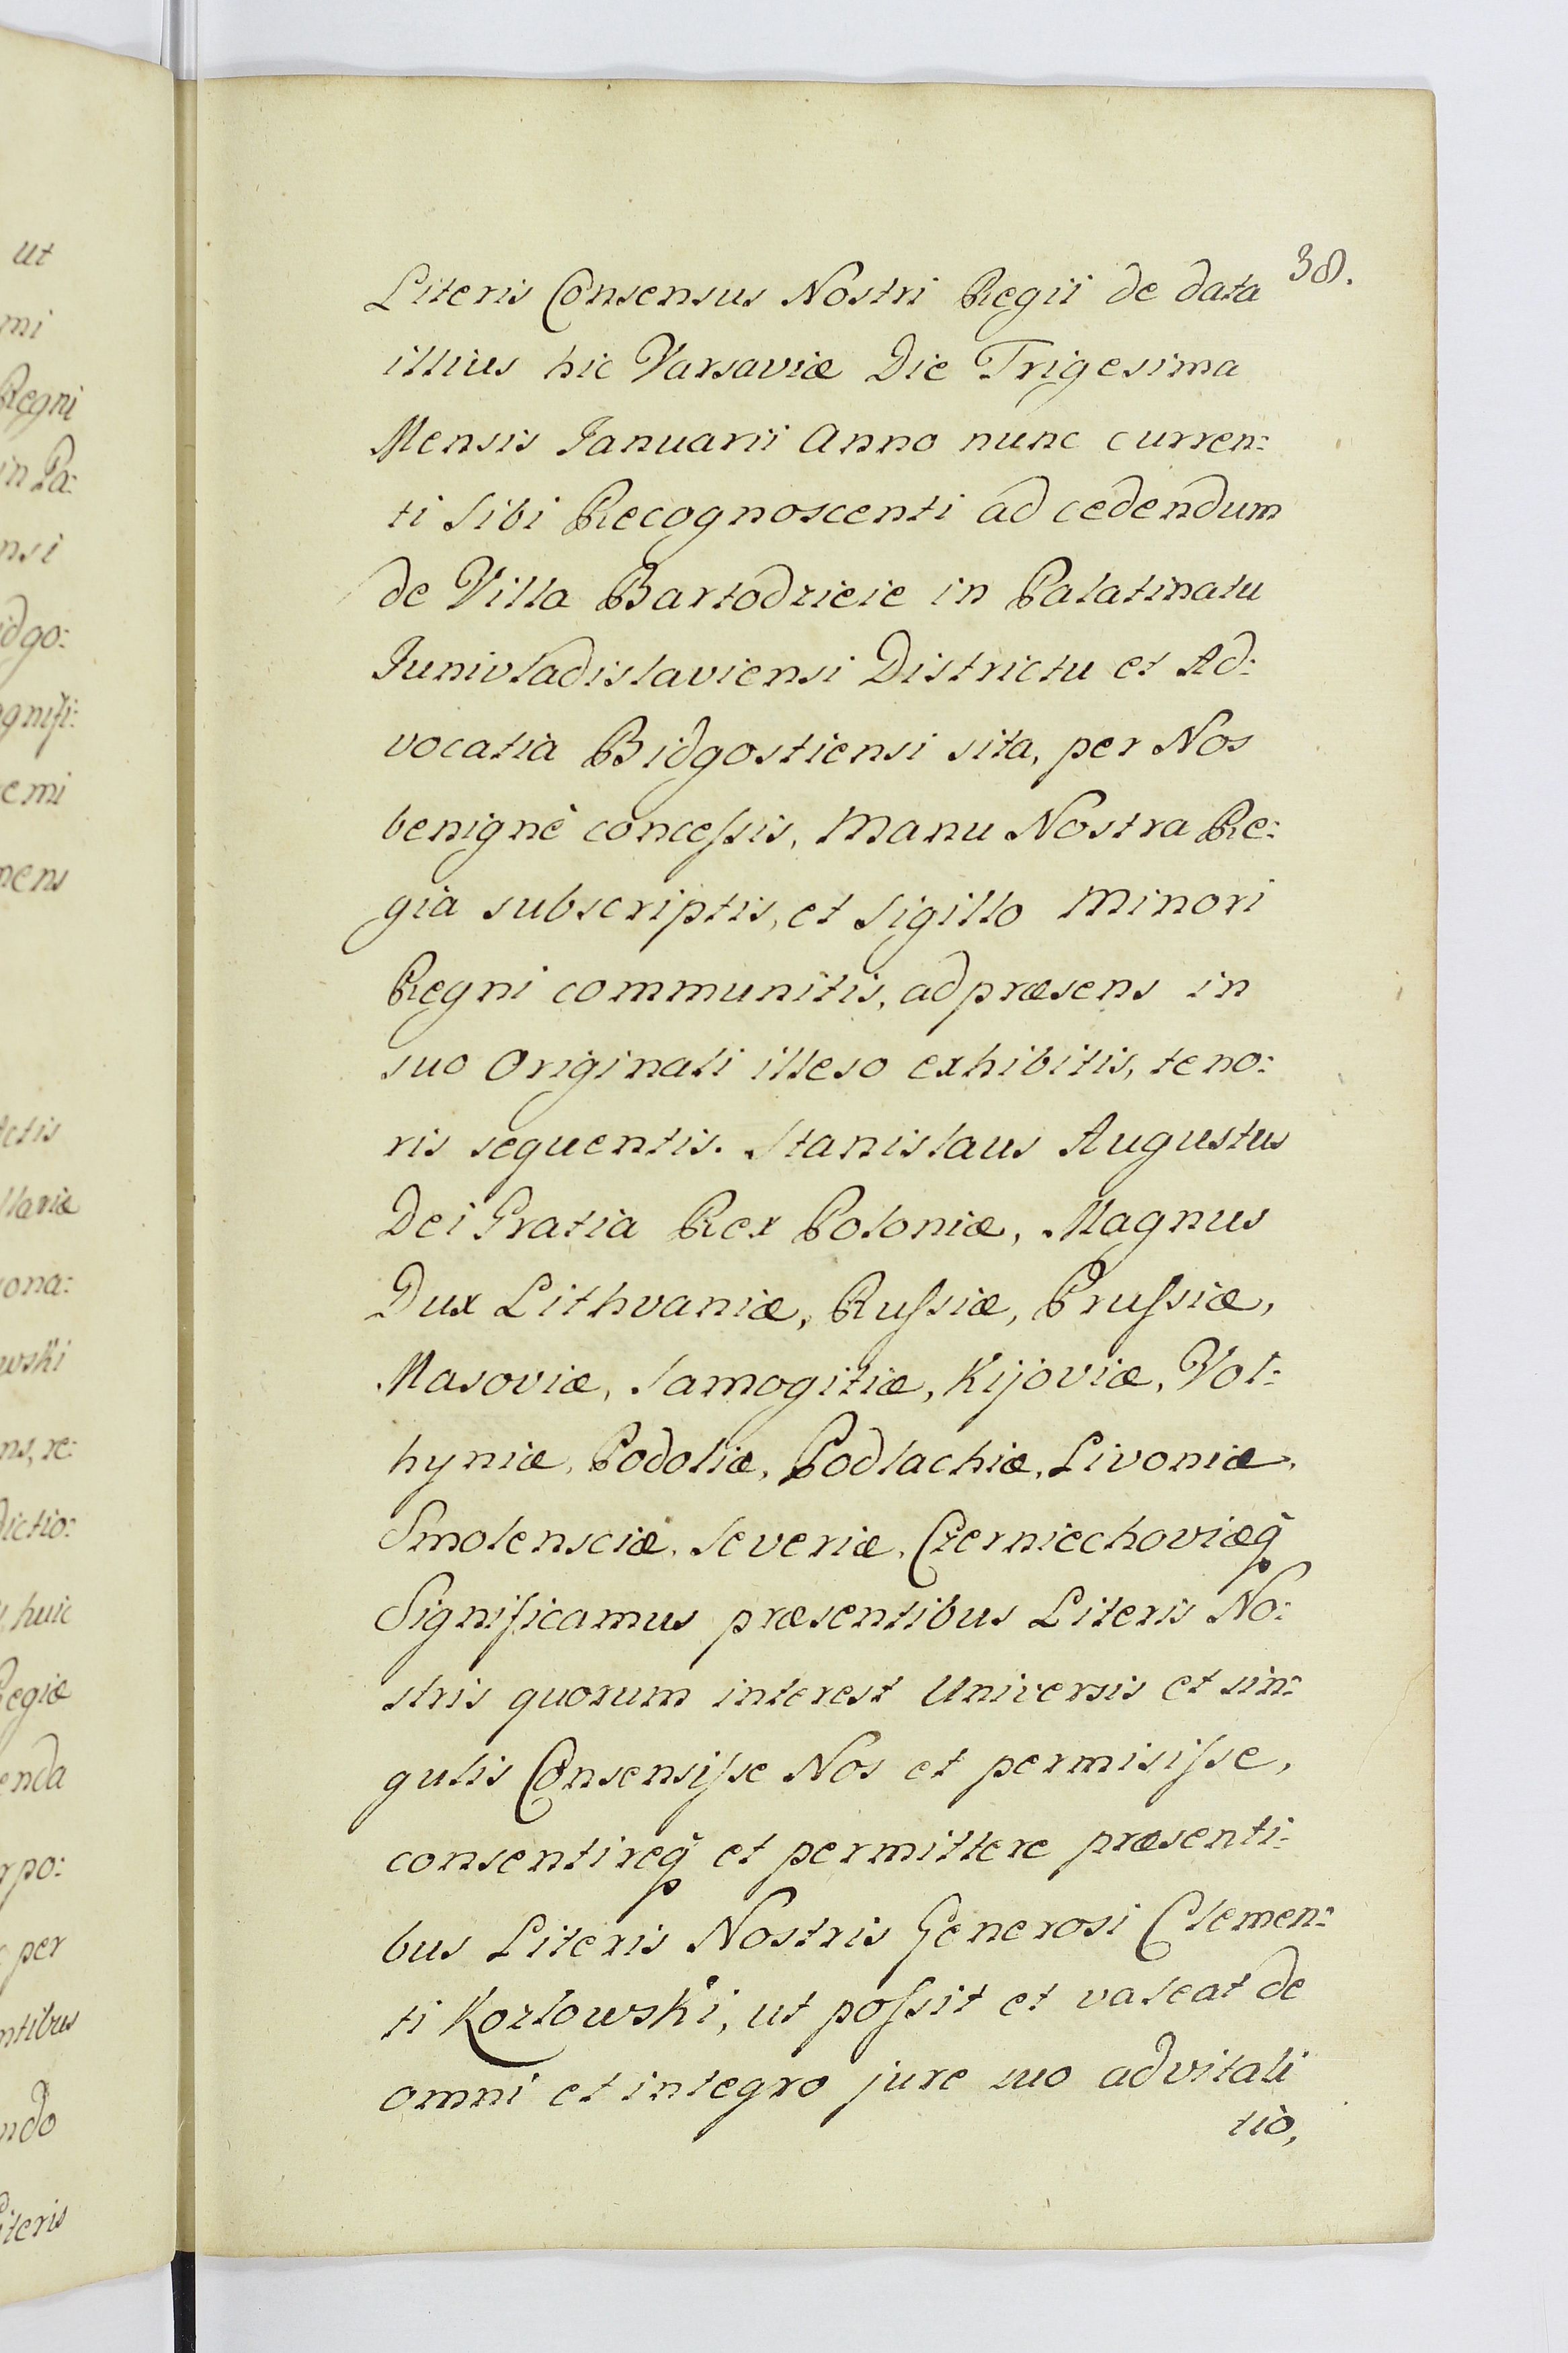 38.
Literis Consensus Nostri Regii de data
illius hic Varsaviæ Die Trigesima
Mensis Januarii Anno nunc curren:
ti Sibi Recognoscenti ad cedendum
de Villa Bartodzieie in Palatinatu
Junivladislaviensi Districtu et Ad:
vocatia Bidgostiensi sita, per Nos
benignè concessis, Manu Nostra Re:
gia subscriptis, et Sigillo Minori
Regni communitis, ad præsens in
suo Originali illeso exhibitis, teno:
ris sequentis. Stanislaus Augustus
Dei Gratia Rex Poloniæ, Magnus
Dux Lithvaniæ, Russiæ, Prussiæ,
Masoviæ, Samogitiæ, Kijoviæ, Vol:
hyniæ, Podoliæ, Podlachiæ, Livoniæ,
Smolensciæ, Severiæ, Czerniechoviæq̃
Significamus præsentibus Literis No:
stris quorum interest Universis et sin:
gulis Consensisse Nos et permisisse,
consentireq̃ et permittere præsenti:
bus Literis Nostris Generosi Clemen:
ti Kozlowski, ut possit et valeat de
omni et integro jure suo advitali
tiò,
ut
mi
Regni
in Pa:
nsi
idgo:
gnifi:
emi
mens
Actis
llariæ
ona:
wski
ns, re:
dictio:
huic
Regiæ
enda
rpo:
per
ntibus
ndo
Literis